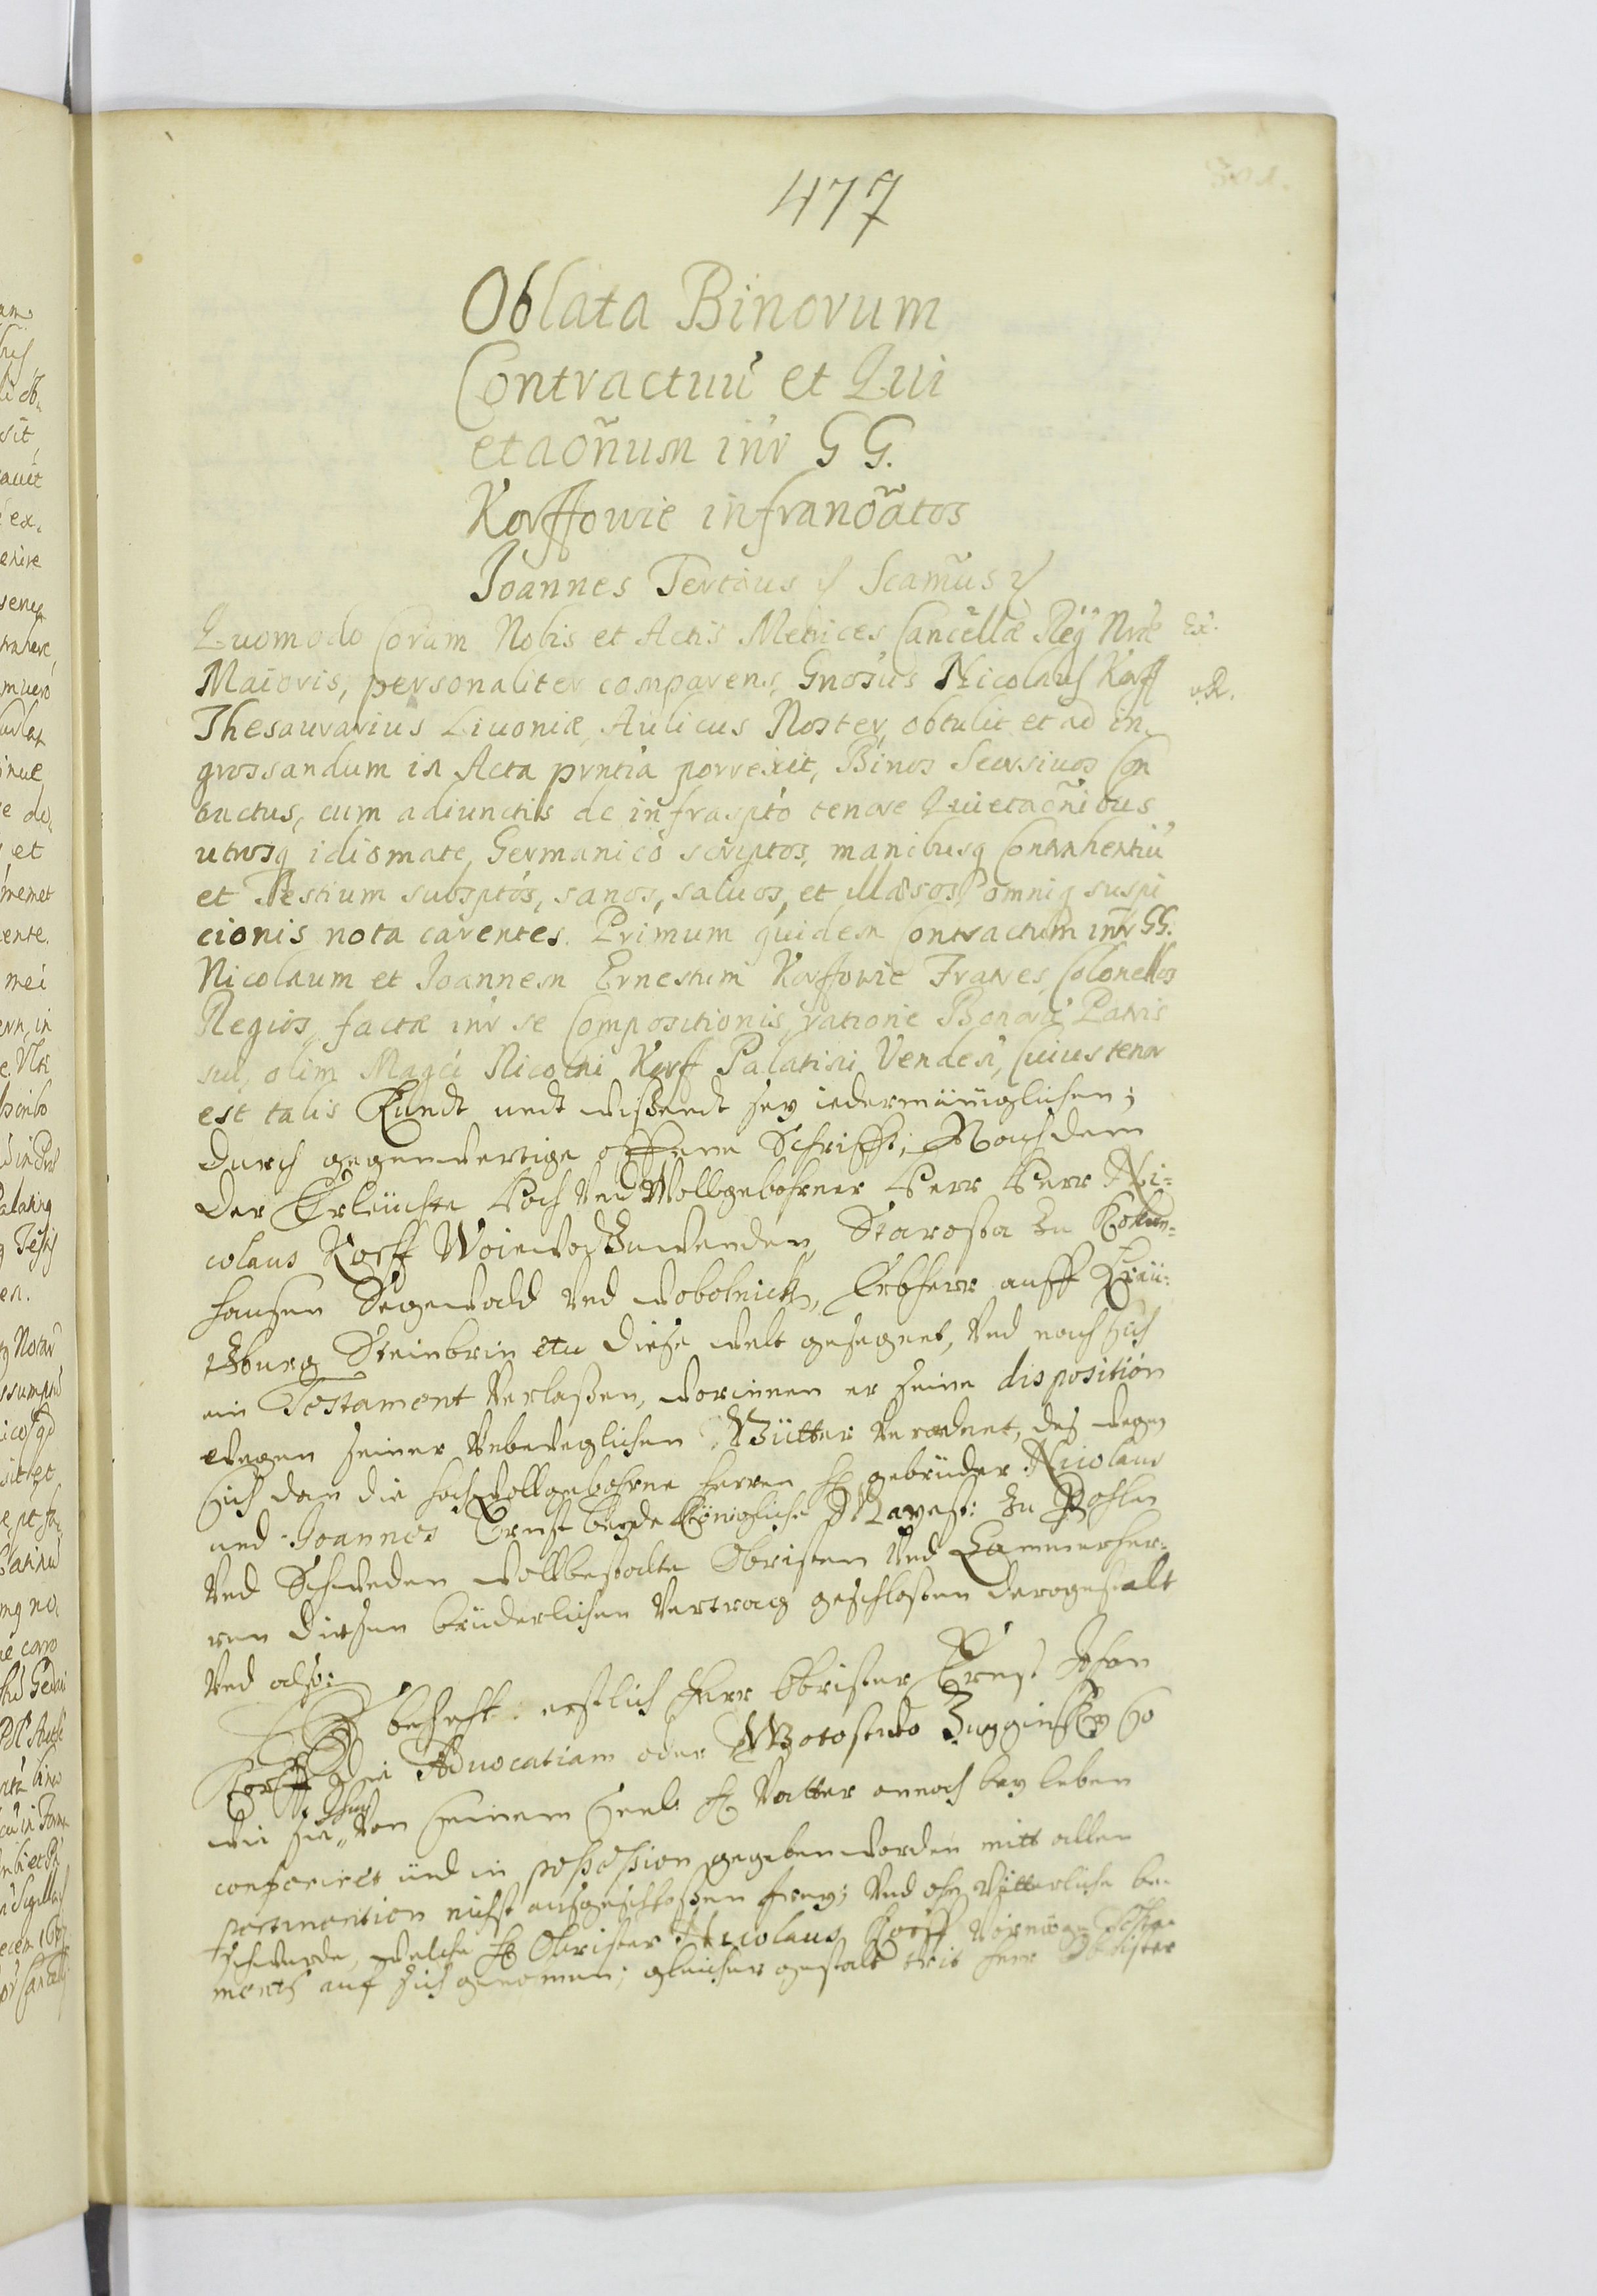 477
Oblata Binorum
Contractuu et Qui
etaoñum inr G G.
Korffowie infranoatos
Joannes Tertius Scamus
Quomodo Coram Nobis et Actis Metrices Cancellæ Regni Nræ
Ex.
Maioris, personaliter comparens, Gnosus Nicolaus Korff
Thesaurarius Livoniæ, Aulicus Noster, obtulit et ad in
grossandum in Acta prntia porrexit, Binos Seorsivos Con
tractus, cum adiunctis de infraspto tenore Quietaoñibus
utrosq idiomate, Germanico scriptos, manibusq Contrahentiu
et Testium subsptos, sanos, salvos, et illæsos, omniq suspi
cionis nota carentes. Primum quidem Contractum intr GG.
Nicolaum et Joannem Ernestum Korffowie Fratres, Colonellos
Regios, factæ intr se Compositionis, ratione Bonoru Patris
sui, olim Magci Nicolai Korff Palatini Venden, Cuius tenor
est talis Kundt undt wißendt sey iedermänniglichen;
durch gegenwertige offene Schrifft; Nachdem
der Erleüchte Hoch Und Wollgebohrner Herr Herr Ni=
colaus Korff Woiewod zu wenden, Starosta zu Koken=
hausen Segewold Und wobolnick, Erbherr auff Kreü=
tzburg Steinbrin etc diese welt gesegnet, Und nach sich
ein Testament Verlaßen, worinnen er seine disposition
wegen seiner Unbeweglichen Gütter Verordnet, des wegen
sich dan die hochwollgebohrne Herren H gebrüder Nicolaus
und Joannes Ernst beyde Königliche Mayest: zu Pohlen
Und Schweden wollbestalte Obristen Und Cammerher=
ren diesen brüderlichen Vertrag geschloßen derogestalt
Und also:
Es behelt erstlich Herr Obrister Ernst Johan
Korff die Advocatiam oder Wotostwo so
wie sie Ihm von seinem Seel: H Vatter annoch bey leben
conferiret und in possession gegeben worden mitt allen
pertinention nicht außgeschloßen frey; Und ohn Vätterliche be=
schwerde, welche H Obrister Nicolaus Korff Vermöge Testa=
ments auf sich genomen; gleicher gestalt trit Herr Obrister